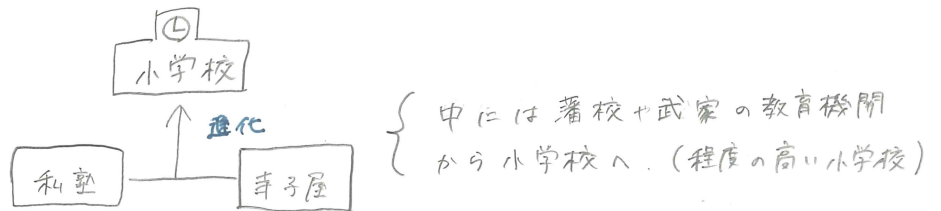 小学校
進化
私塾
寺子屋
中には藩校や武家の教育機関
から小学校へ.(程度の高い小学校)